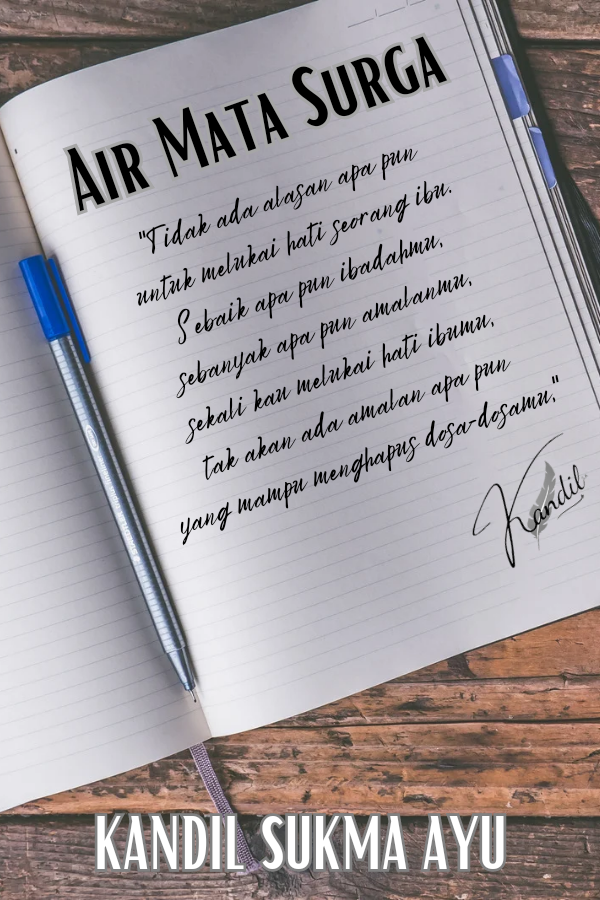 AIR MATA SURGA
"Tidak ada alasan apa pun
untuk melukai hati seorang ibu.
Sebaik apa pun ibadahmu,
sebanyak apa pun amalanmu,
sekali kau melukai hati ibumu,
tak akan ada amalan apa pun
yang mampu menghapus dosa-dosamu."
Kandil
KANDIL SUKMA AYU